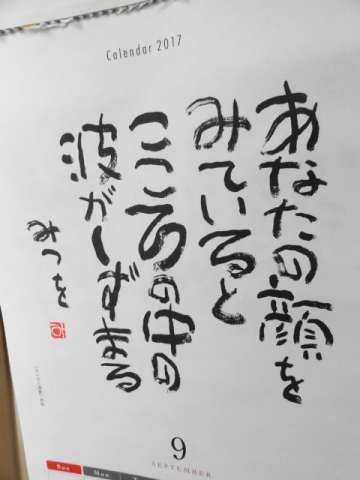 Calendar 2017
あなたの顔を
みていると
こころの中の
波がしずまる
みつを
9
SEPTEMBER
Sun
Mon